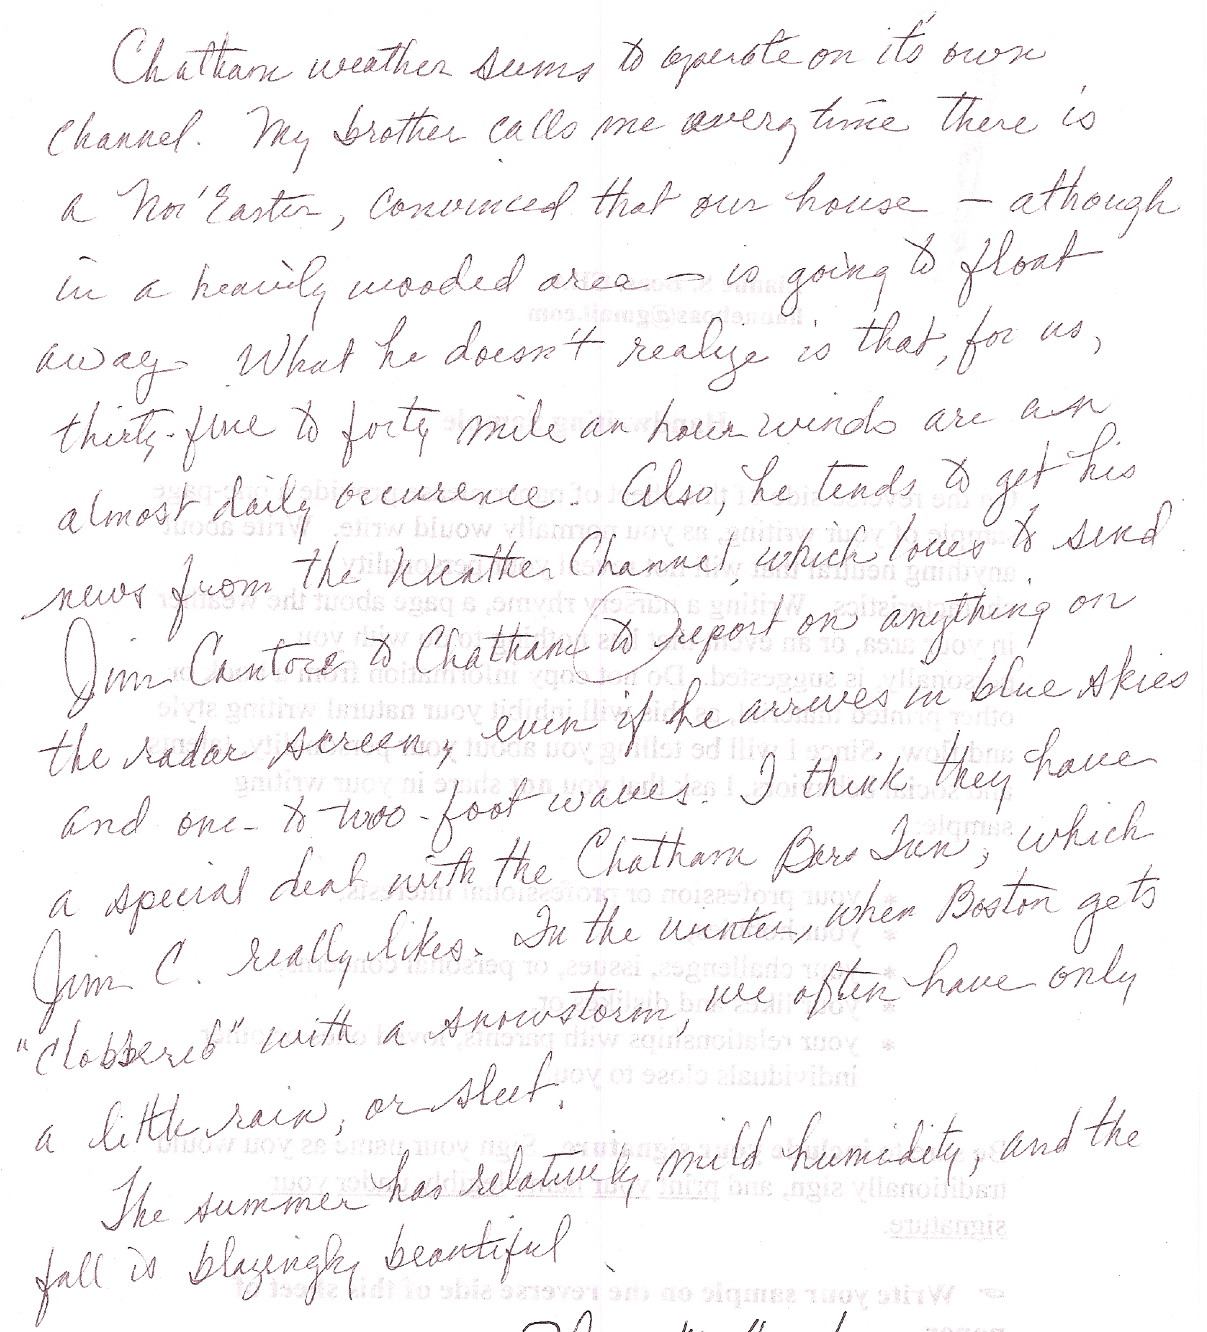 Chatham weather seems to operate on it's own
channel. My brother calls me every time there is
a Nor'Easter, convinced that our house – athough
in a heavily wooded area – is going to float
away. What he doesn't realize is that, for us,
thirty-five to forty mile an hour winds are an
almost daily occurence. Also, he tends to get his
news from the Weather Channel, which loves to send
Jim Cantore to Chatham to report on anything on
the radar screen, even if he arrives in blue skies
and one- to two-foot waves. I think they have
a special deal with the Chatham Bars Inn, which
Jim C. really likes. In the winter, when Boston gets
"clobbered" with a snowstorm, we often have only
a little rain, or sleet.
The summer has relatively mild humidity, and the
fall is blazingly beautiful.